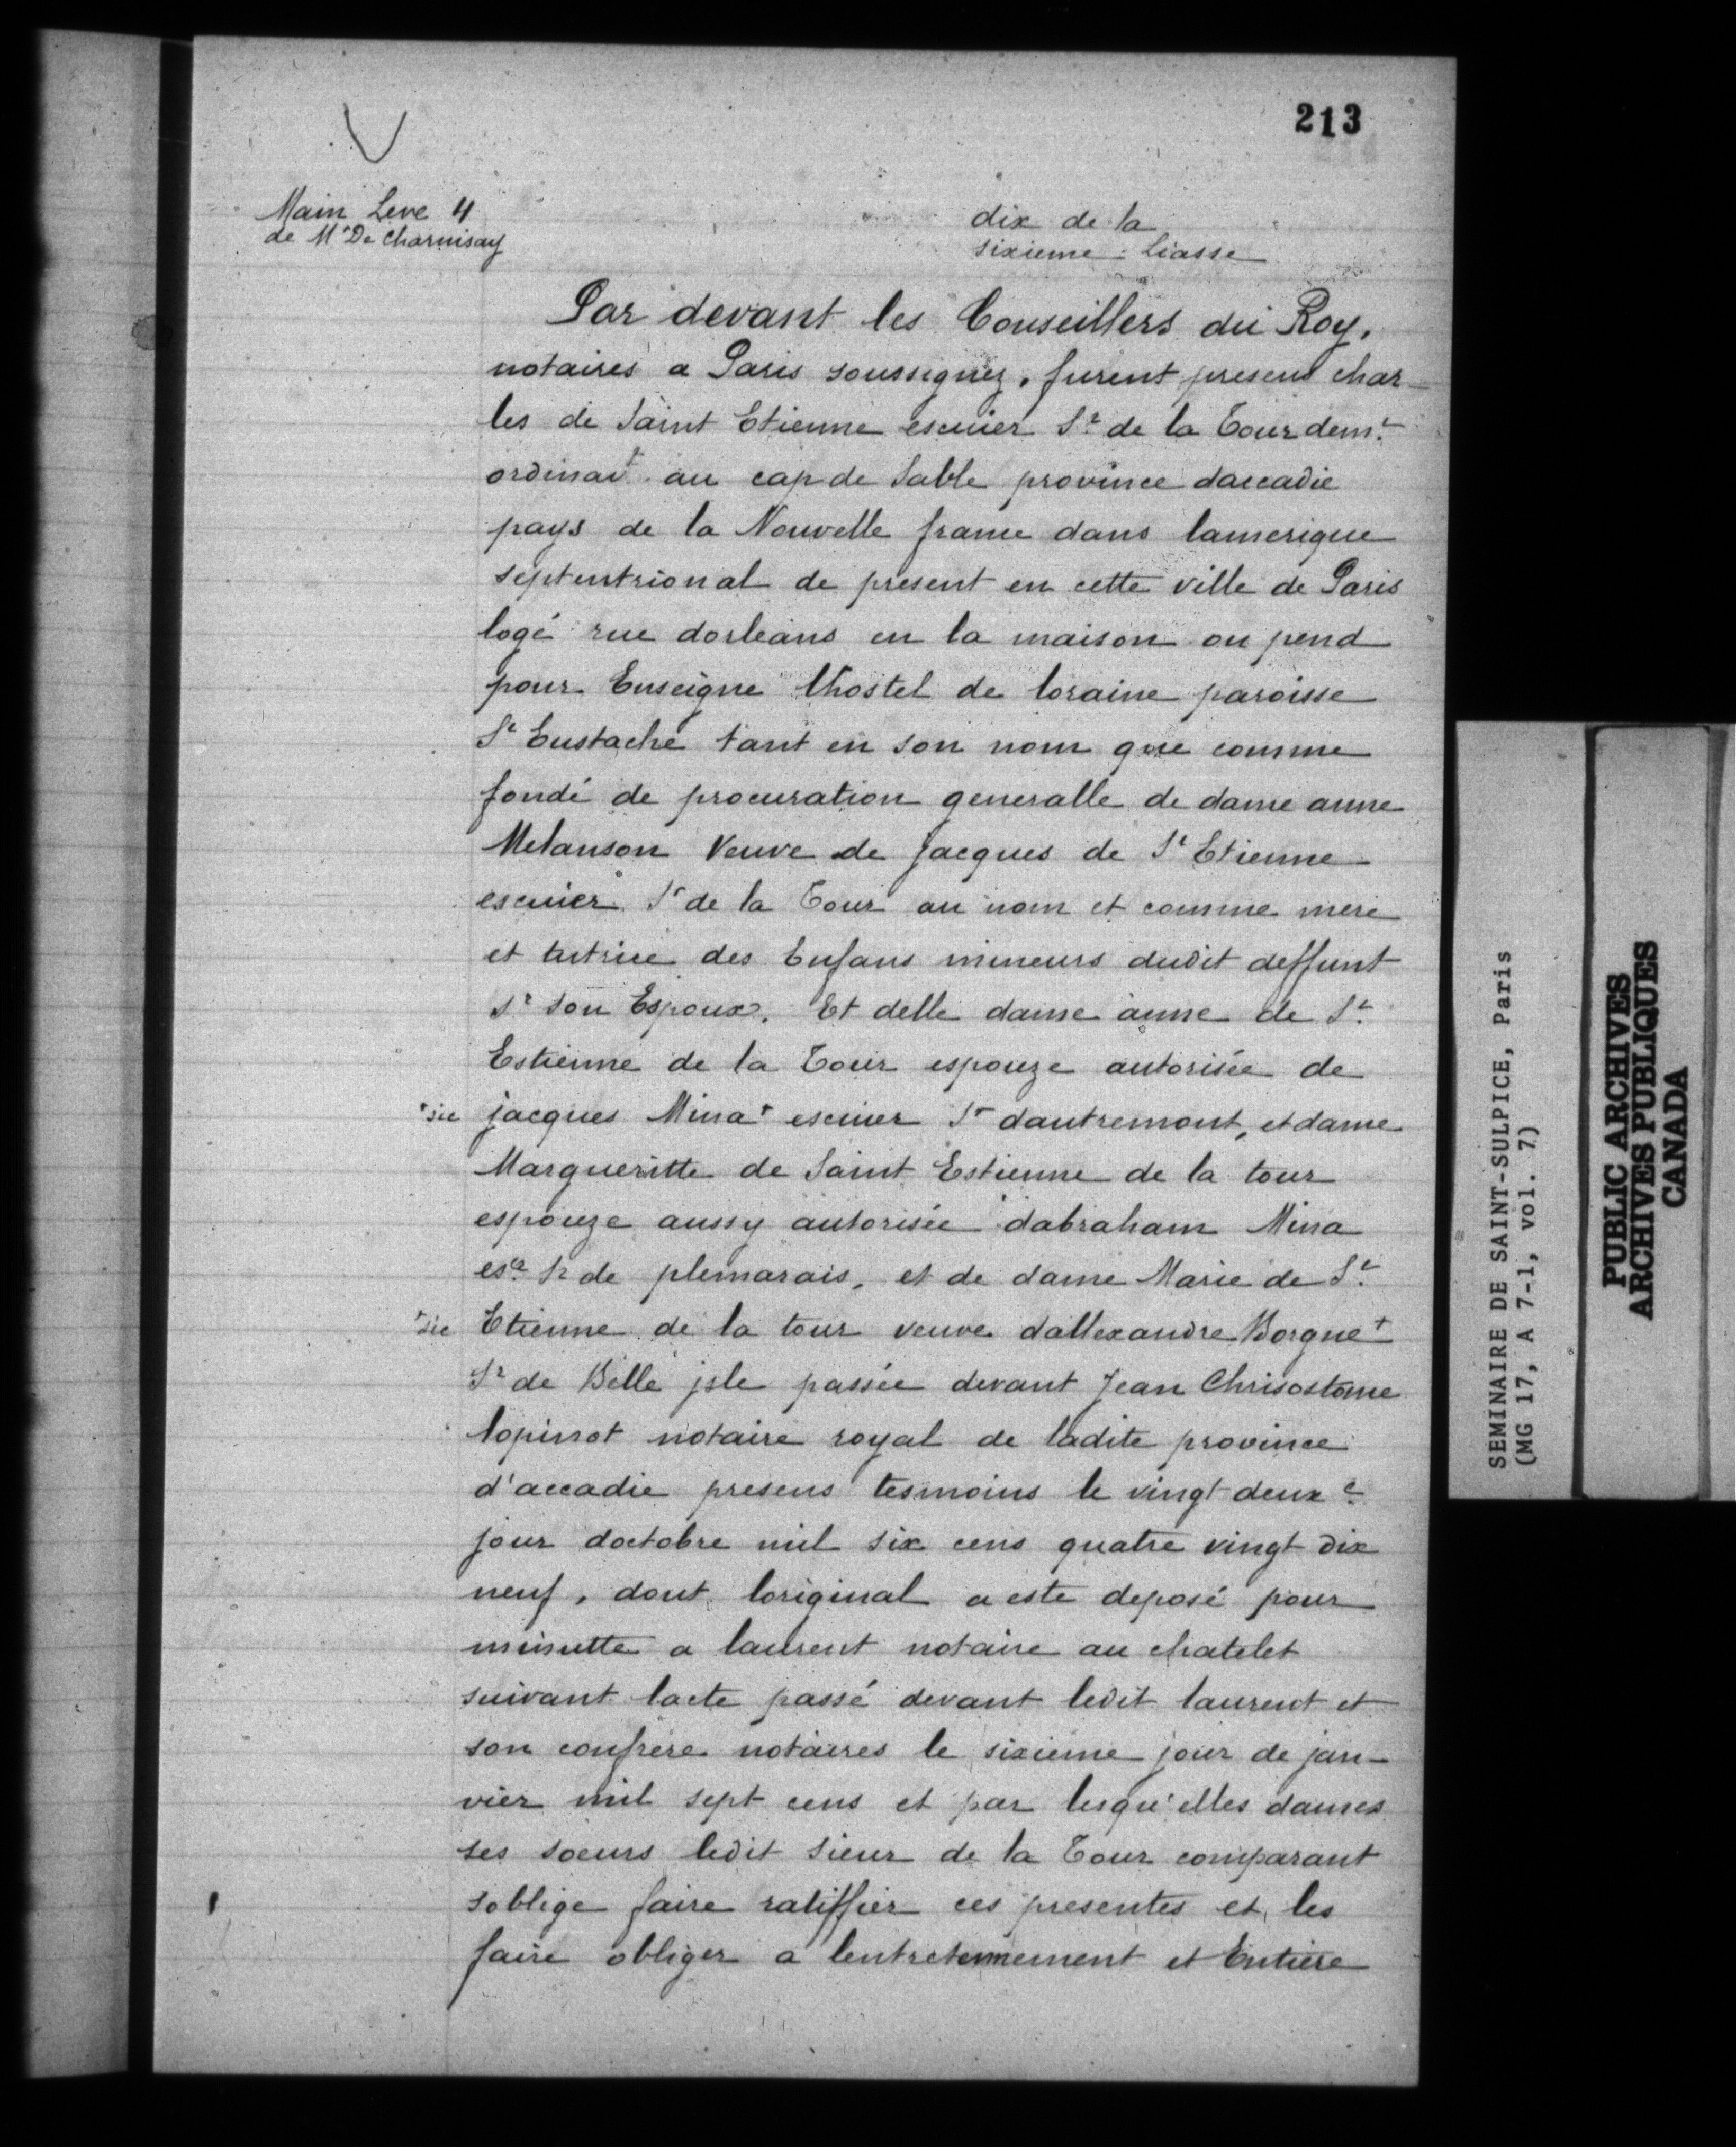 213
Main Leve 4
de Mr De Charnisay
dix de la
sixieme liasse
Par devant les Conseillers du Roy,
notaires a Paris soussignez, furent presens char-
les de Saint Etienne escuier Sr de la Tour demt
ordinairt au cap de Sable province daccadie
pays de la Nouvelle france dans lamerique
septentrional de present en cette ville de Paris
logé rue dorleans en la maison ou pend
pour Enseigne lhostel de loraine paroisse
St Eustache tant en son nom que comme
fondé de procuration generalle de dame anne
Melanson Veuve de jacques de St Etienne
escuier Sr de la Tour au nom et comme mere
et tutrice des Enfans mineurs dudit deffunt
Sr son Espoux. Et delle dame anne de St
Estienne de la Tour espouze autorisée de
+sic jacques Mina+ escuier Sr dautremont, et dame
Margueritte de Saint Estienne de la tour
espouze aussy autorisée dabraham Mina
escr Sr de plemarais, et de dame Marie de St
+sic Etienne de la tour veuve dallexandre Borgne+
Sr de Belle jsle passée devant Jean Chrisostome
lopinot notaire royal de ladite province
d'accadie presens tesmoins le vingt deuxe
jour doctobre mil six cens quatre vingt dix
neuf, dont loriginal a este deposé pour
minutte a laurent notaire au chatelet
suivant lacte passé devant ledit laurent et
son confrere notaires le sixieme jour de jan-
vier mil sept cens et par lesqu'elles dames
ses soeurs ledit sieur de la Tour comparant
soblige faire ratiffier ces presentes et les
faire obliger a lentretennement et Entiere
SEMINAIRE DE SAINT-SULPICE, Paris
(MG 17, A 7-1, vol. 7)
PUBLIC ARCHIVES
ARCHIVES PUBLIQUES
CANADA